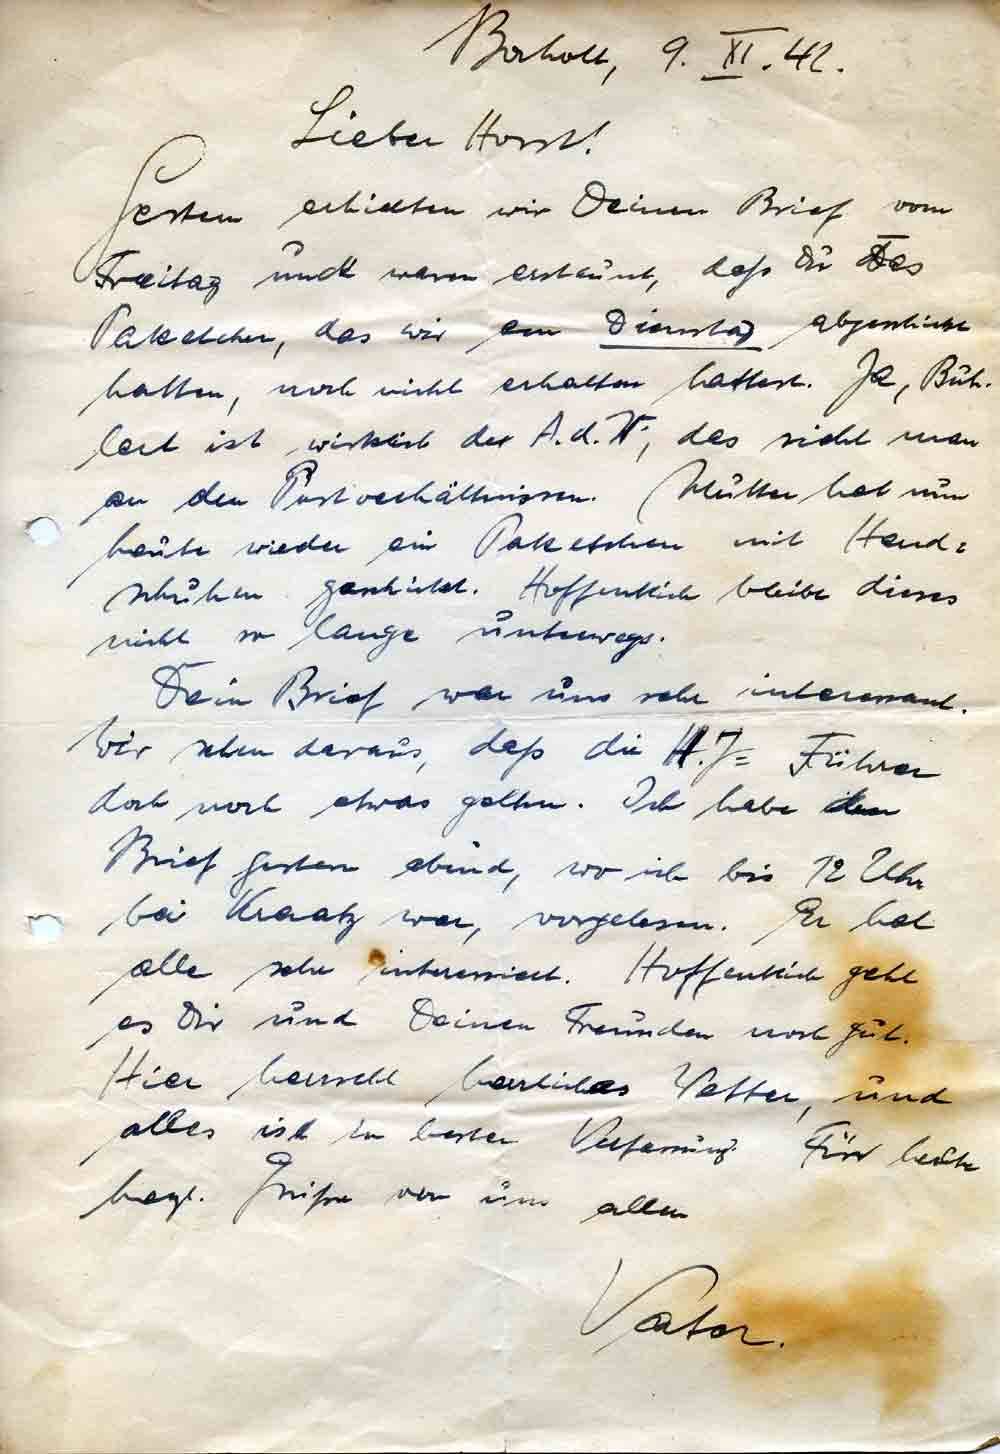 Bocholt, 9. XI. 42.
Lieber Horst!
Gestern erhielten wir Deinen Brief vom
Freitag und waren erstaunt, daß Du das
Paketchen, das wir am Dienstag abgeschickt
hatten, noch nicht erhalten hattest. Ja, Büh-
lert ist wirklich der A. d. W., das sieht man
an den Postverhältnissen. Mutter hat nun
heute wieder ein Paketchen mit Hand=
schuhen geschickt. Hoffentlich bleibt dieses
nicht so lange unterwegs.
Dein Brief war uns sehr interessant.
Wir sehen daraus, daß die H.J= Führer
doch noch etwas gelten. Ich habe den
Brief gestern abend, wo ich bis 12 Uhr
bei Kraatz war, vorgelesen. Er hat
alle sehr interessiert. Hoffentlich geht
es Dir und Deinen Freunden noch gut.
Hier herrscht herrliches Wetter, und
alles ist in bester Verfassung. Für heute
herzl. Grüße von uns allen
Vater.